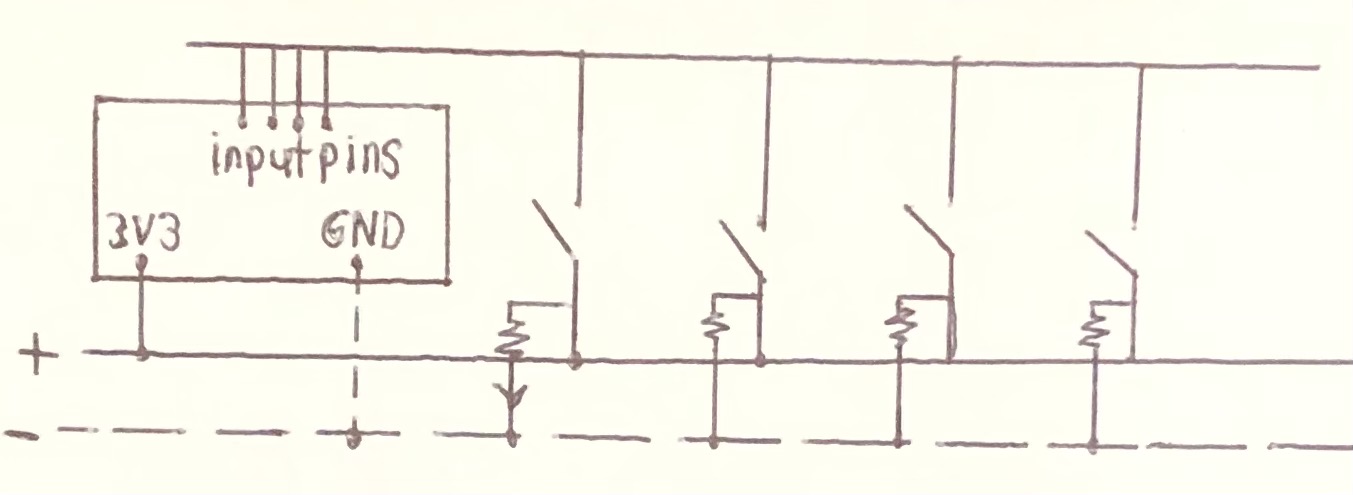 input pins
3V3 GND
+
-